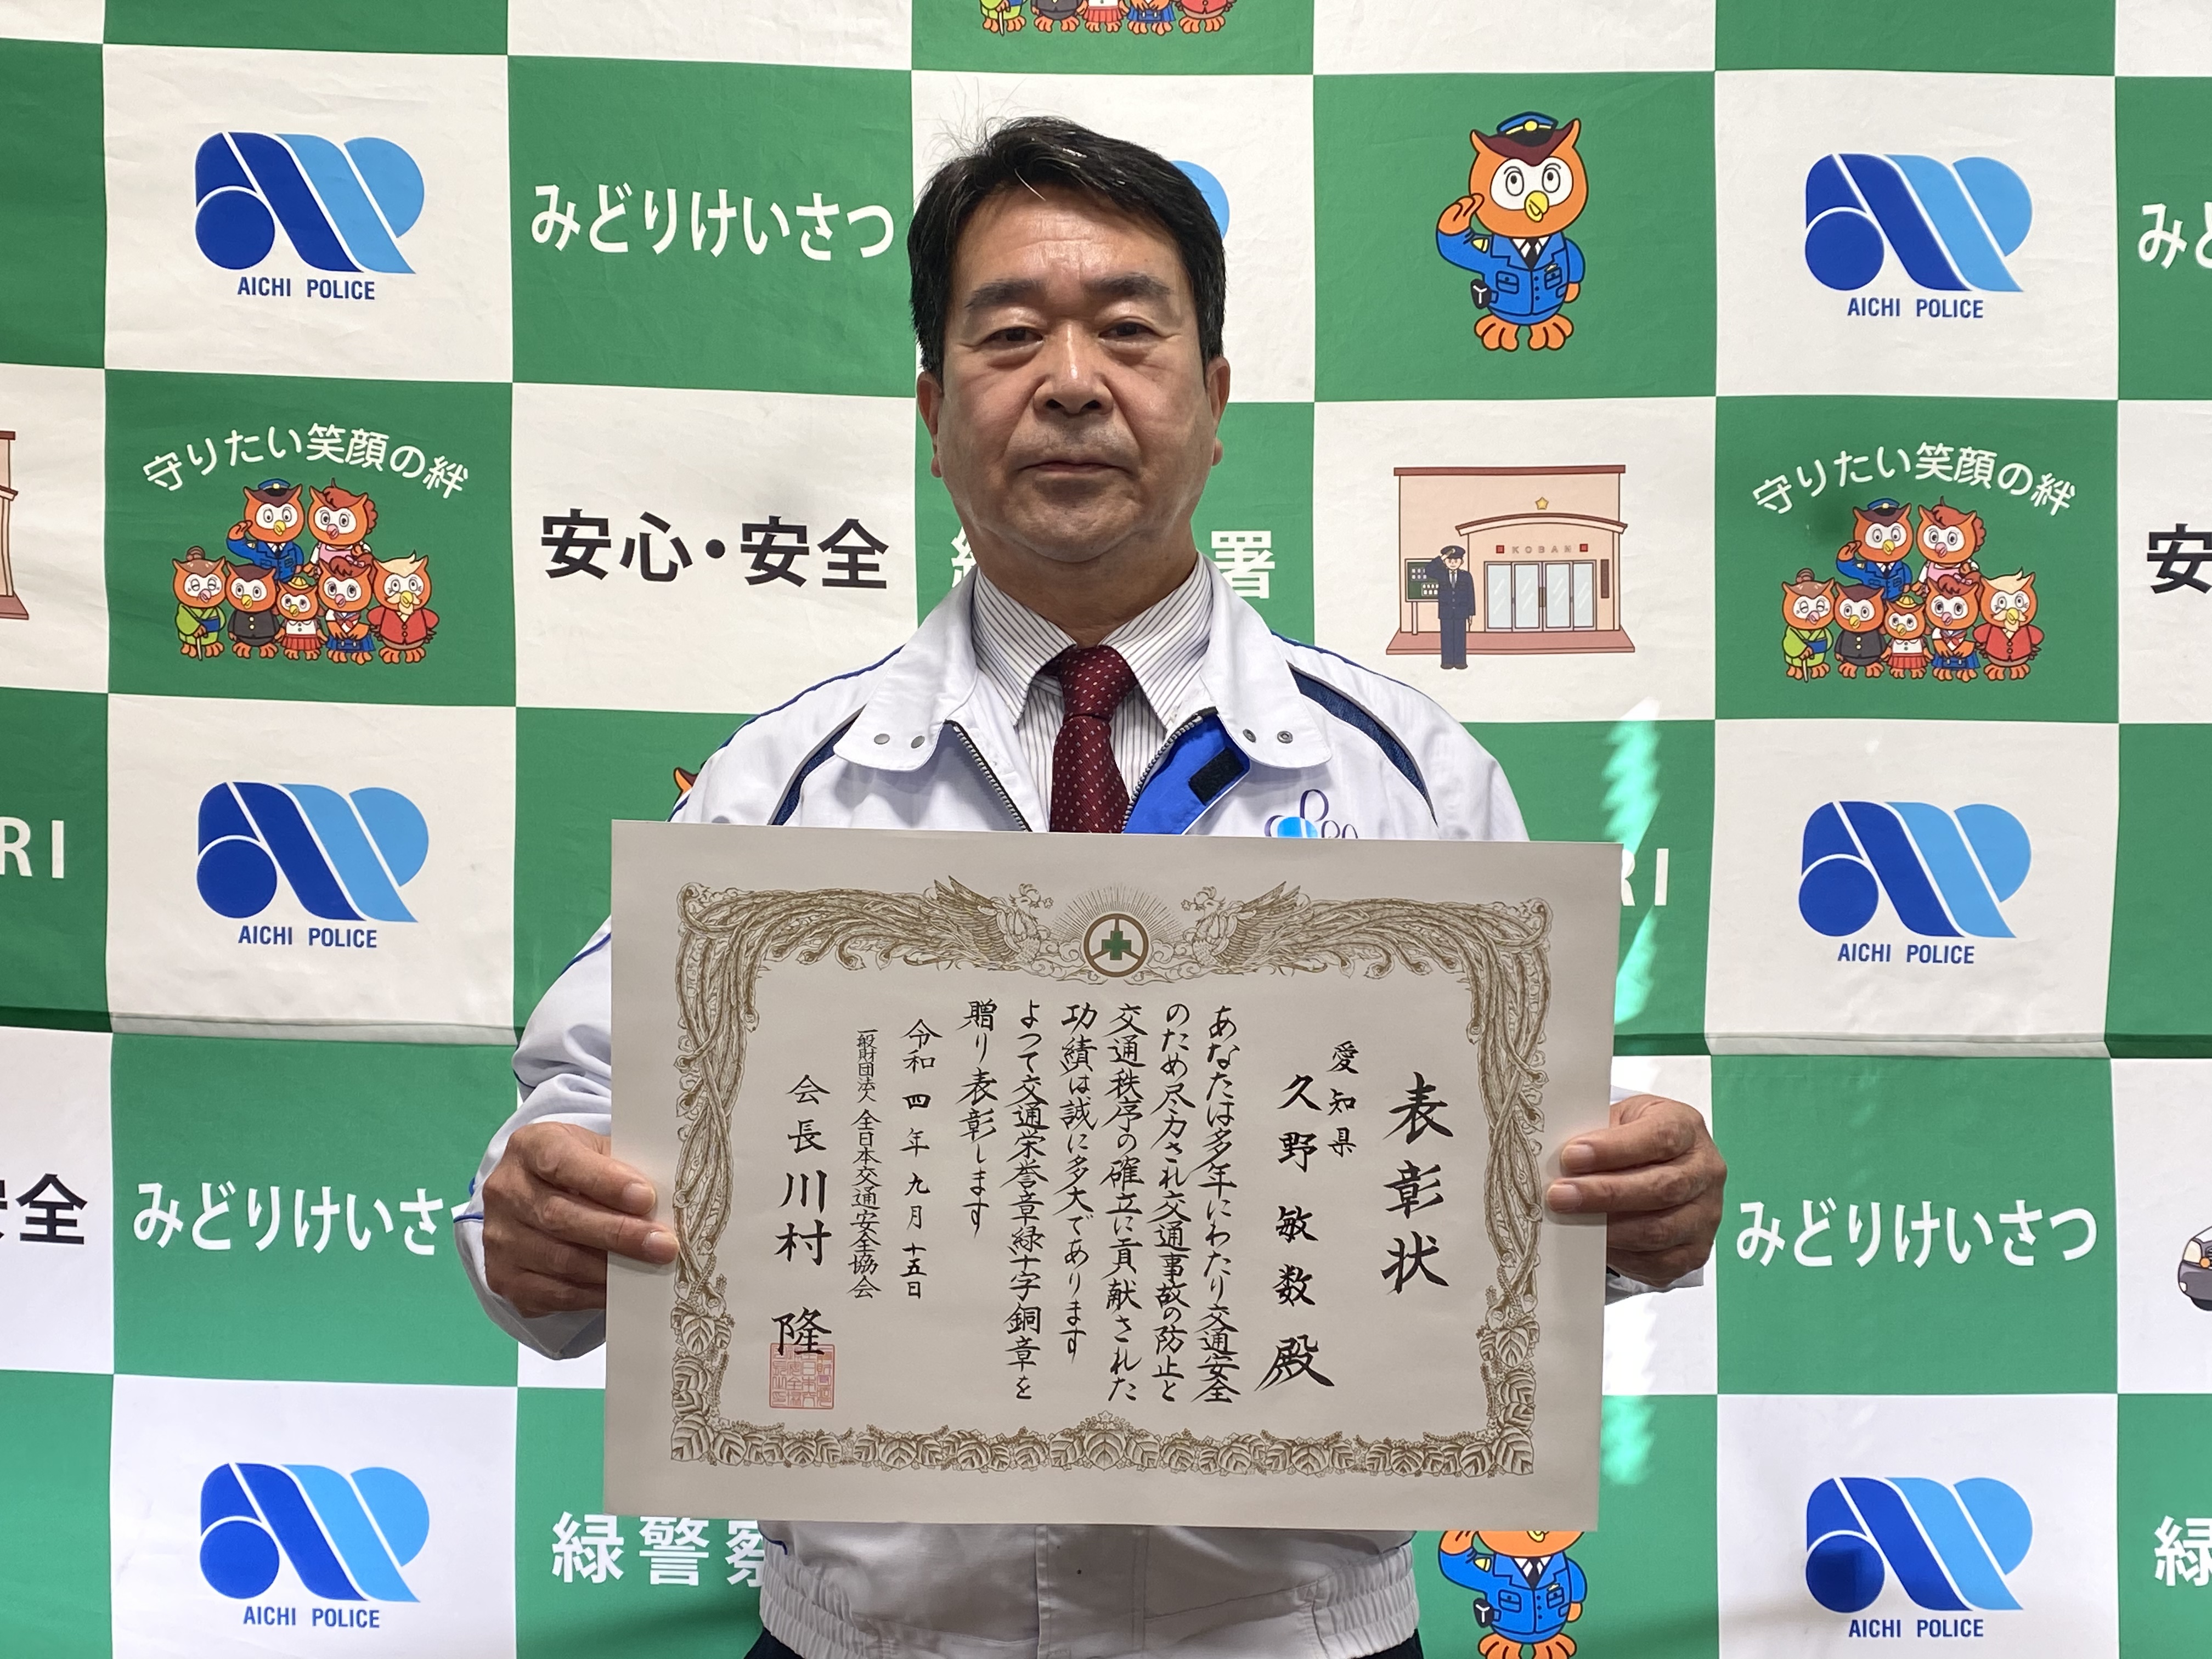 AICHI POLICE
みどりけいさつ
AICHI POLICE
みど
守りたい笑顔の絆
安心・安全
署
KOBAN
守りたい笑顔の絆
安
RI
AICHI POLICE
RI
AICHI POLICE
安全
みどりけいさつ
みどりけいさつ
AICHI POLICE
緑警察
AICHI POLICE
緑
表彰状
愛知県
久野敏数殿
あなたは多年にわたり交通安全
のため尽力され交通事故の防止と
交通秩序の確立に貢献された
功績は誠に多大であります
よつて交通栄誉章緑十字銅章を
贈り表彰します
令和四年九月十五日
一般財団法人 全日本交通安全協会
会長 川村 隆